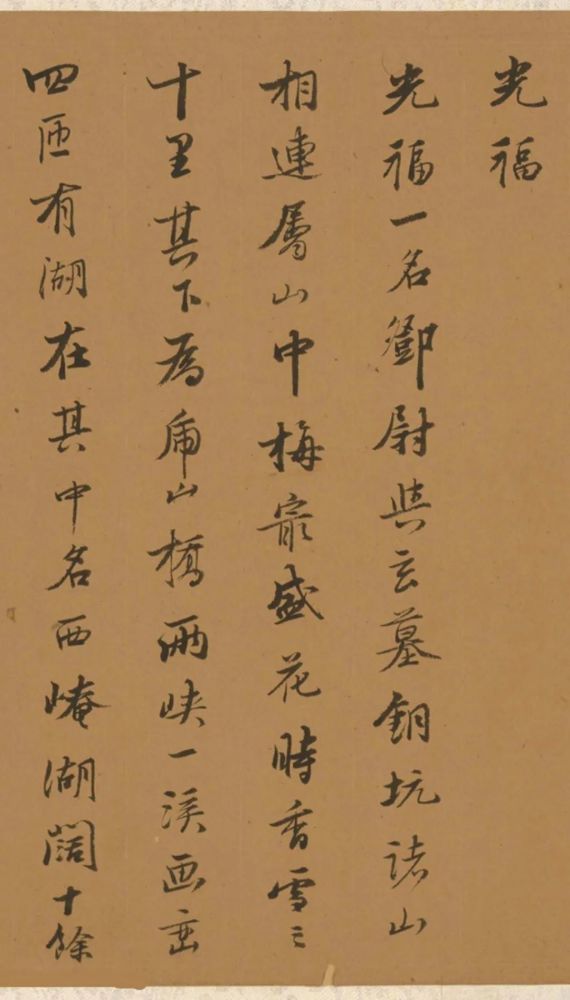 光福
光福一名鄧尉與玄墓銅坑諸山
相連屬山中梅最盛花時香雪三
十里其下爲虎山橋兩峽一溪画巒
四匝有湖在其中名西崦湖闊十餘